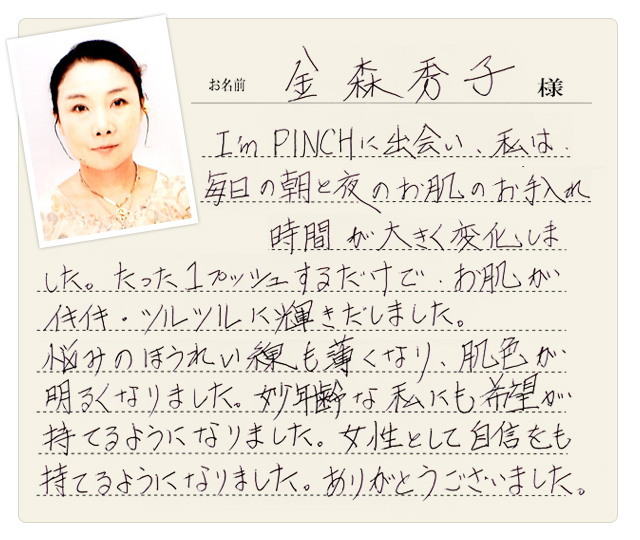 お名前 金森秀子 様
I'm PINCHに出会い、私は、
毎日の朝と夜のお肌のお手入れ
時間が大きく変化しま
した。たった1プッシュするだけで、お肌が
イキイキ・ツルツルに輝きだしました。
悩みのほうれい線も薄くなり、肌色が、
明るくなりました。妙年齢な私にも希望が
持てるようになりました。女性として自信をも
持てるようになりました。ありがとうございました。